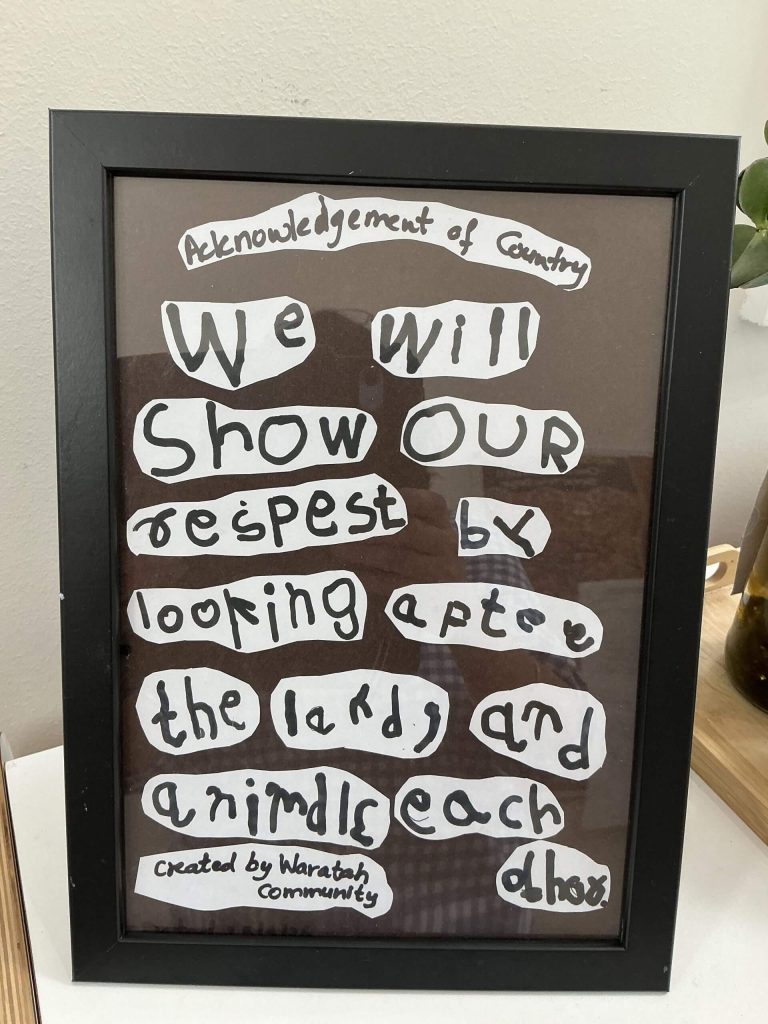 Acknowledgement of Country
We will
Show OUR
respest by
looking aptee
the land, and
animals each
other.
created by Waratah
Community